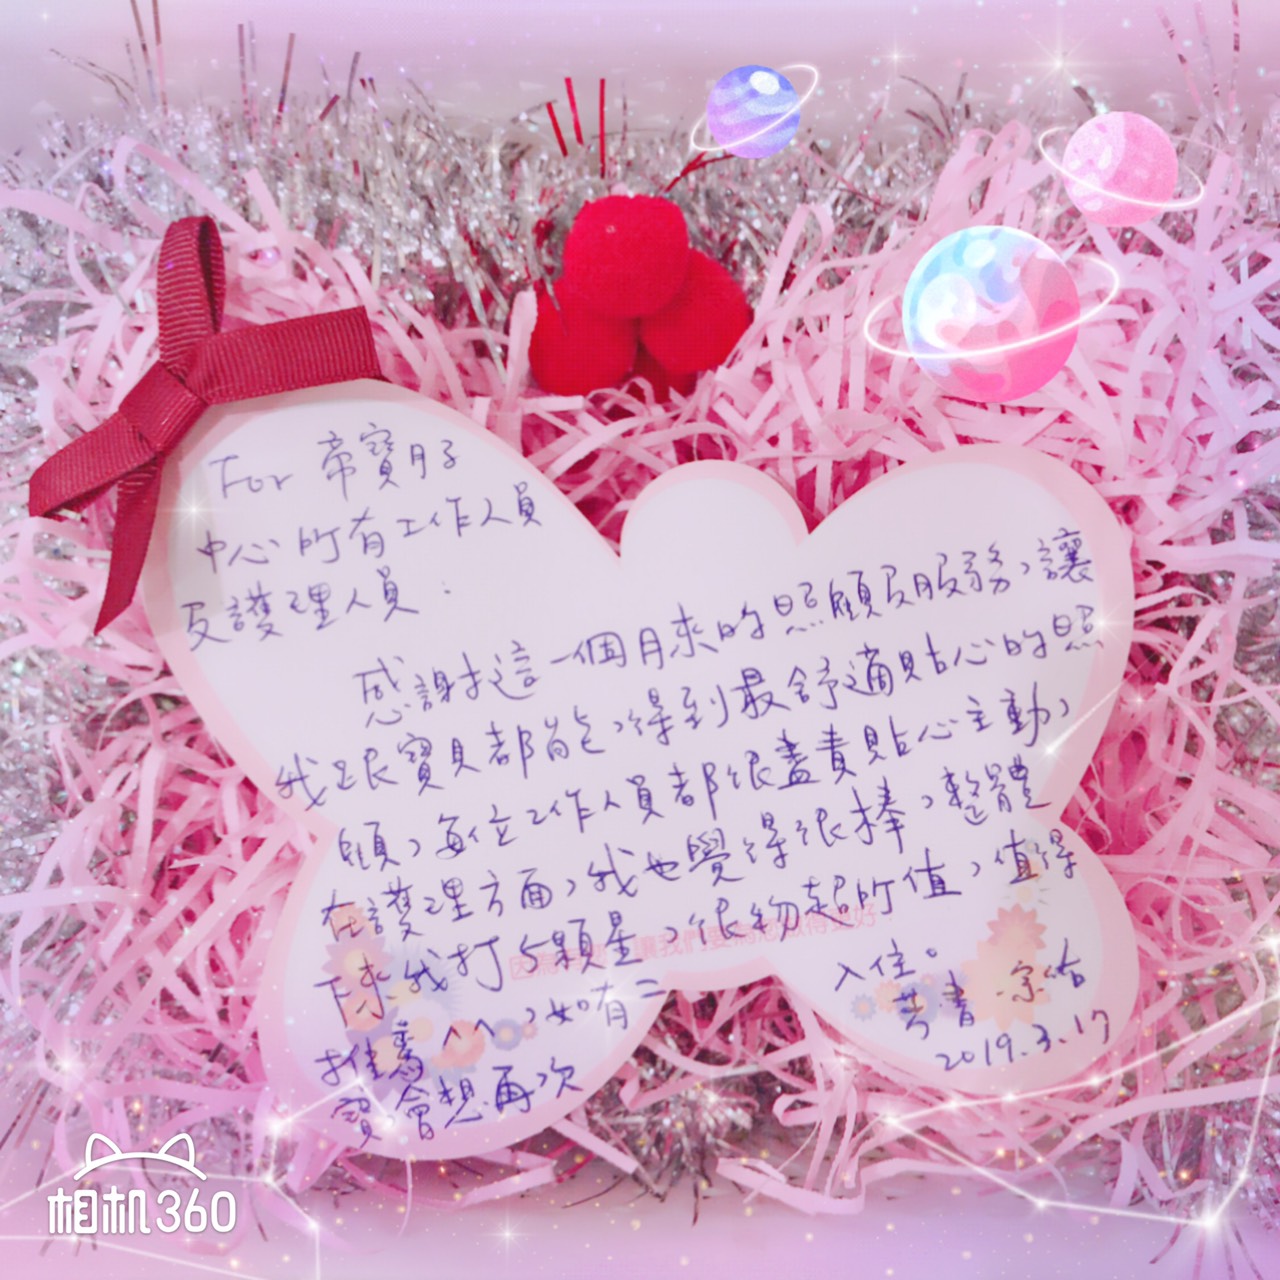 For 帝寶月子
中心的有工作人員
及護理人員:
感謝這一個月來的照顧及服務,讓
我跟寶貝都能,得到最舒適貼心的照
顧,每位工作人員都很盡責貼心主動,
在護理方面,我也覺得很棒,整體
下來我打5顆星,很物超所值,值得
推薦^^,如有二
寶會想再次
入住。
2019.3.17
相机360